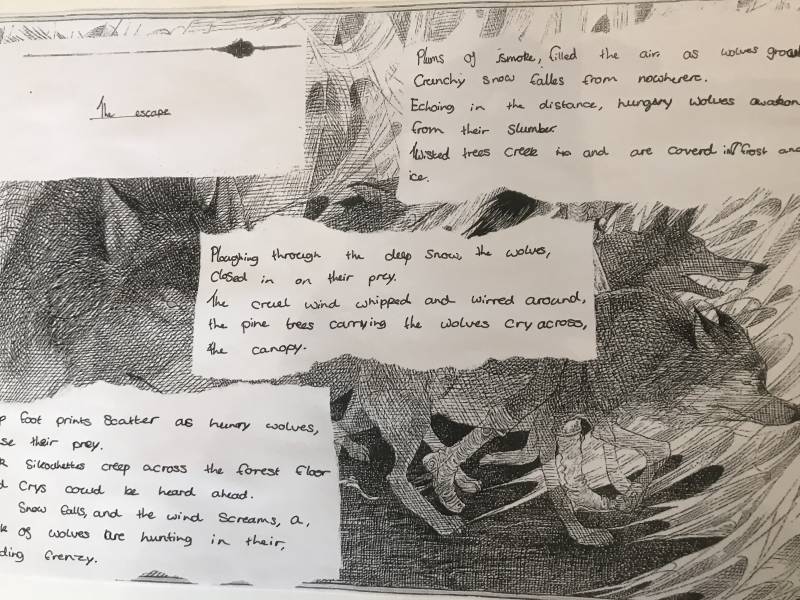 The escape
Plums of smoke, filled the air as wolves
Crunchy snow falles from nowherere.
Echoing in the distance, hungary wolves awaken
from their slumber.
Twisted trees Creek and are coverd in frost and
ice.
Ploughing through the deep snow, the wolves,
Closed in on their prey.
The cruel wind whipped and wirred around,
the pine trees carrying the wolves cry across,
the canopy.
foot prints Scatter as hungry wolves,
their prey.
Silouhettes creep across the forest floor
Crys could be heard ahead.
Snow falls, and the wind Screams, a,
of wolves are hunting in their,
frenzy.